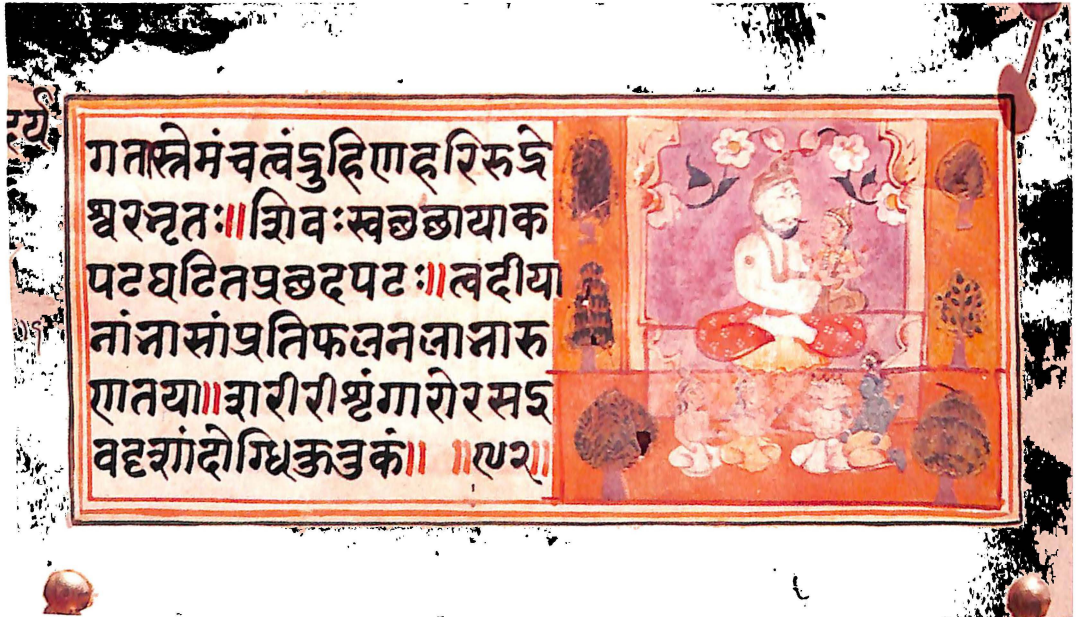 गतास्तेमंचत्वंद्रुहिणहरिरुद्रे
श्वरभृतः॥शिवःस्वछछायाक
पटघटितप्रछदपटः॥त्वदीया
नांभासांप्रतिफलनलाभारु
णतया॥शरीरीशृंगारोरसइ
वदृशांदोग्धिकुतुकं॥ ॥९२॥